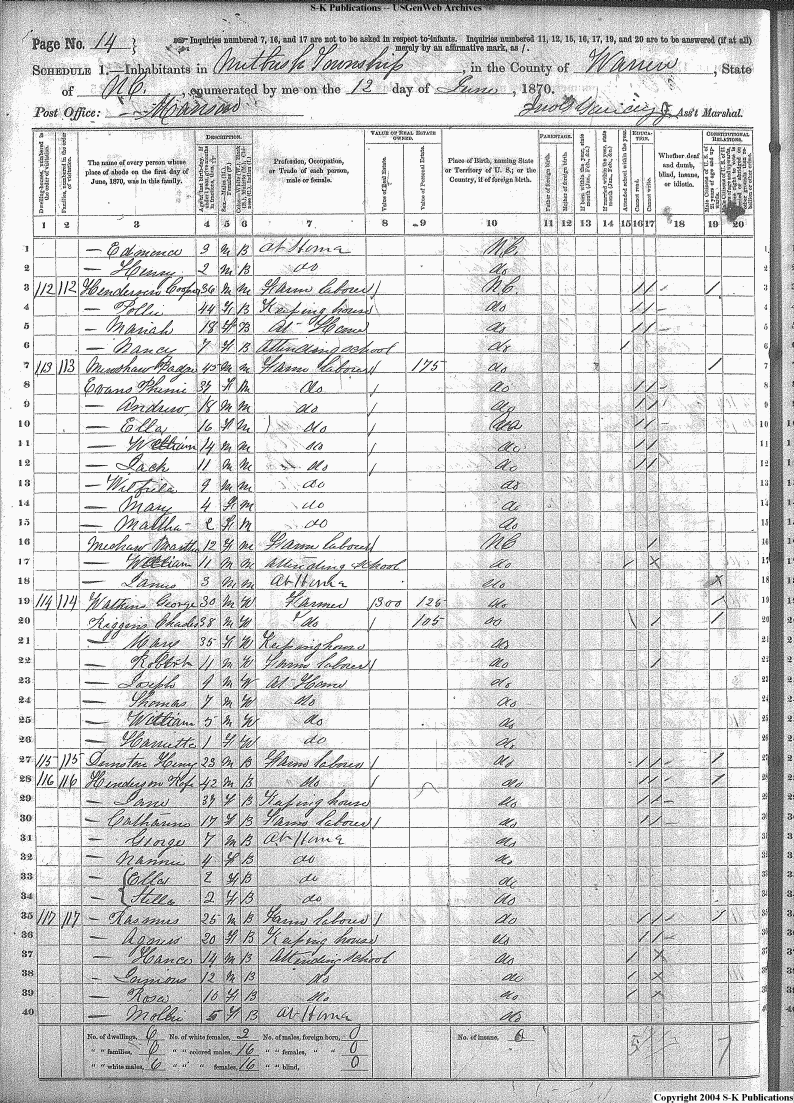 S-K Publications -- USGenWeb Archives
Page No. 14
Inquiries numbered 7, 16, and 17 are not to be asked in respect to infants. Inquiries numbered 11, 12, 15, 16, 17, 19, and 20 are to be answered (if at all) merely by an affirmative mark, as /.
SCHEDULE 1.—Inhabitants in Nutbush Township, in the County of Warren, State
of N.C., enumerated by me on the 12 day of June, 1870.
Post Office: Manson Ass't Marshal.
DESCRIPTION. VALUE OF REAL ESTATE OWNED. PARENTAGE. EDUCATION. CONSTITUTIONAL RELATIONS.
The name of every person whose place of abode on the first day of June, 1870, was in this family.
Profession, Occupation, or Trade of each person, male or female.
Value of Real Estate. Value of Personal Estate.
Place of Birth, naming State or Territory of U. S.; or the Country, if of foreign birth.
Father of foreign birth. Mother of foreign birth.
Attended school within the year. Cannot read. Cannot write.
Whether deaf and dumb, blind, insane, or idiotic.
1 2 3 4 5 6 7 8 9 10 11 12 13 14 15 16 17 18 19 20
1 — Edmonia 9 M B At Home N.C.
2 — Henny 2 M B do do
3 112 112 Henderson Cooper 36 M M Farm labourer / N.C. / / /
4 — Pollie 44 F B Keeping house do / /
5 — Mariah 18 F B At Home do / /
6 — Nancy 7 F B Attending school do /
7 113 113 45 M M Farm labourer / 175 do /
8 Evans 37 F M do / do / /
9 — Andrew 18 M M do / do / /
10 — Ella 16 F M do / do / /
11 — William 14 M M do / do / /
12 — Jack 11 M M do / do / /
13 9 M M do do
14 — Mary 4 F M do do
15 — Martha 2 F M do do
16 12 F M Farm labourer N.C. /
17 — William 11 M M attending school do / x
18 — James 3 M M At Home do x
19 114 114 Watkins George 30 M W Farmer 1300 125 do /
20 Riggins Charles 38 M W do 105 do / /
21 — Mary 35 F W Keeping house do
22 — Robert 11 M W Farm labourer / do /
23 — Joseph 9 M W At Home do
24 — Thomas 7 M W do do
25 — William 5 M W do do
26 — Harriette 1 F W do do
27 115 115 Dunston Henry 23 M B Farm labourer / do / / /
28 116 116 Henderson 42 M B do / do / / /
29 — Jane 37 F B Keeping house do / /
30 — Catharine 17 F B Farm labourer / do / /
31 — George 7 M B At Home do
32 — Nannie 4 F B do do
33 — Ella 2 F B do do
34 Stella 2 F B do do
35 117 117 — Rasmus 25 M B Farm labourer / do / / /
36 — Agness 20 F B Keeping house do / /
37 — Hance 14 M B Attending school do / x
38 12 M B do do / x
39 — Rosa 10 F B do do / x
40 — Mollie 5 F B At Home do
No. of dwellings, 6 No. of white females, 2 No. of males, foreign born, 0 No. of insane, 0
" " families, 6 " " colored males, 16 " " females, " " 0
" " white males, 6 " " " females, 16 " " blind, 0
Copyright 2004 S-K Publications